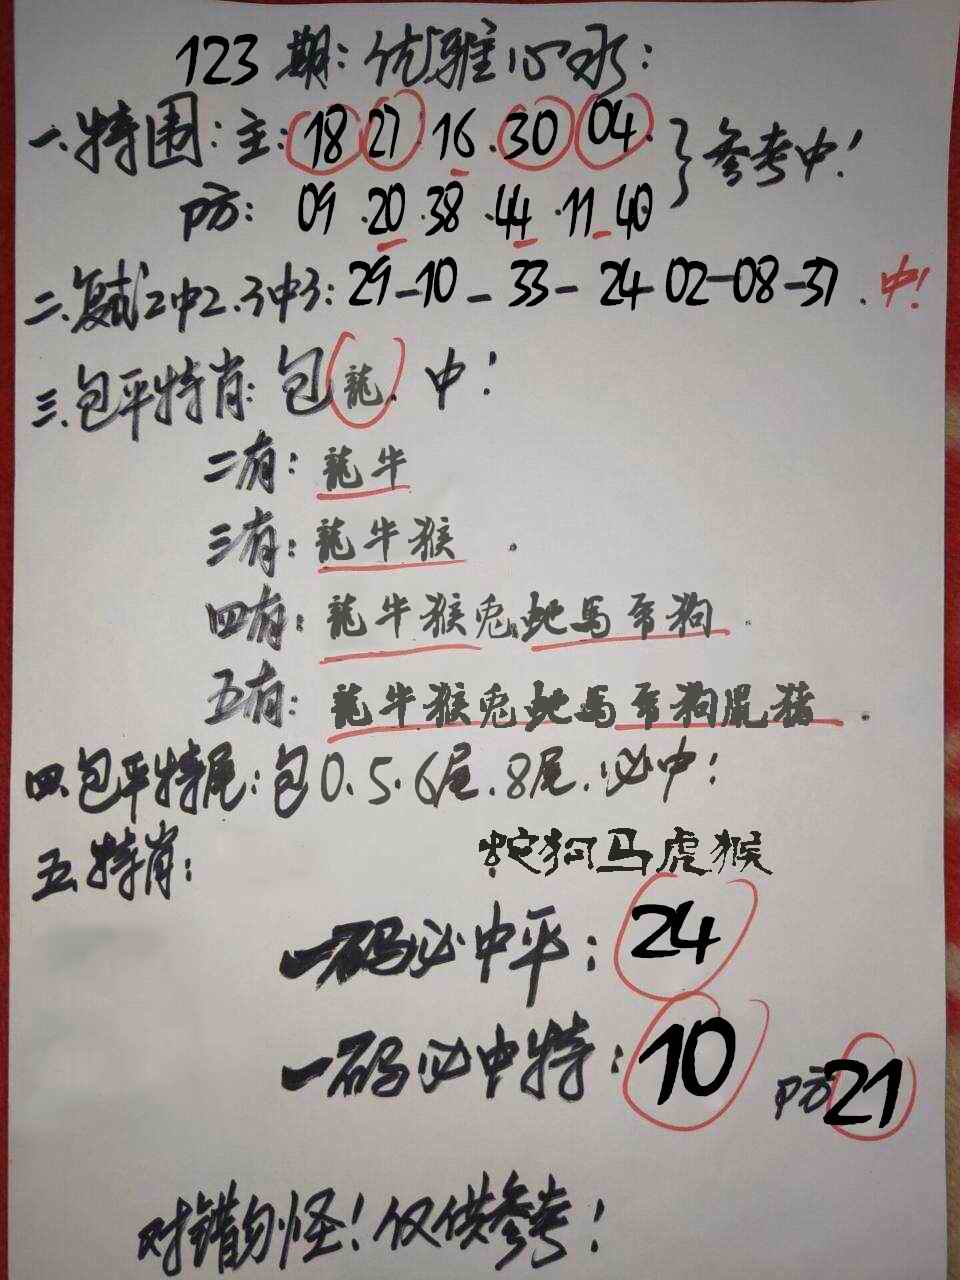 123期:优雅心水:
一.特围:主:18 27 16.30 04. 参考中!
防: 09.20.38.44.11.40
二.复式2中2.3中3:29-10-33-24-02-08-37.中!
三.包平特肖:包龍.中!
二有:龍牛
三有:龍牛猴.
四有:龍牛猴兎蛇馬羊狗.
五有:龍牛猴兎蛇馬羊狗鼠猪.
四.包平特尾:包0.5.6尾.8尾.必中!
五.特肖: 蛇狗马虎猴
一码必中平:24
一码必中特:10 防21
对错勿怪!仅供参考!